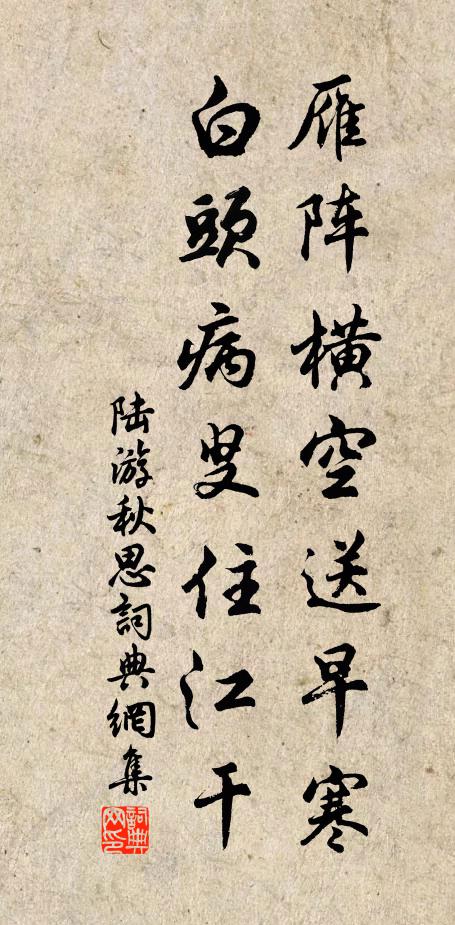 雁阵橫空送早寒
白頭病叟住江干
陆游秋思詞典網集
詞典网印